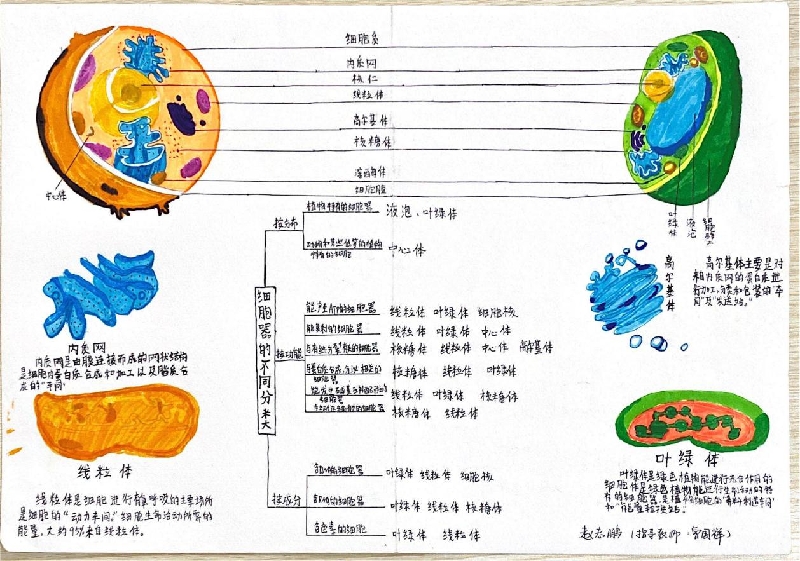 细胞质
内质网
核仁
线粒体
高尔基体
核糖体
溶酶体
细胞膜
中心体
叶绿体
液泡
细胞壁
细胞器的不同分类
按分布
植物特有的细胞器
液泡、叶绿体
动物和某些低等的植物
特有的细胞
中心体
按功能
能产生ATP的细胞器
线粒体 叶绿体 细胞核
能复制的细胞器
线粒体 叶绿体 中心体
与有丝分裂有关的细胞器
核糖体 线粒体 中心体 高尔基体
核糖体 线粒体 叶绿体
线粒体 叶绿体 核糖体
核糖体 线粒体
按成分
含DNA的细胞器
叶绿体 线粒体 细胞核
含RNA的细胞器
叶绿体 线粒体 核糖体
含色素的细胞
叶绿体 线粒体
内质网
内质网是由膜连接而成的网状结构
是细胞内蛋白质合成和加工以及脂质合
成的"车间"
线粒体
线粒体是细胞进行有氧呼吸的主要场所
是细胞的"动力车间"细胞生命活动所需的
能量,大约95%来自线粒体。
高尔基体
高尔基体主要是对
来自内质网的蛋白质进
行加工,分类和包装的"车
间"及"发送站"。
叶绿体
叶绿体是绿色植物能进行光合作用的
细胞
和"能量转换站"
赵志鹏(指导教师: